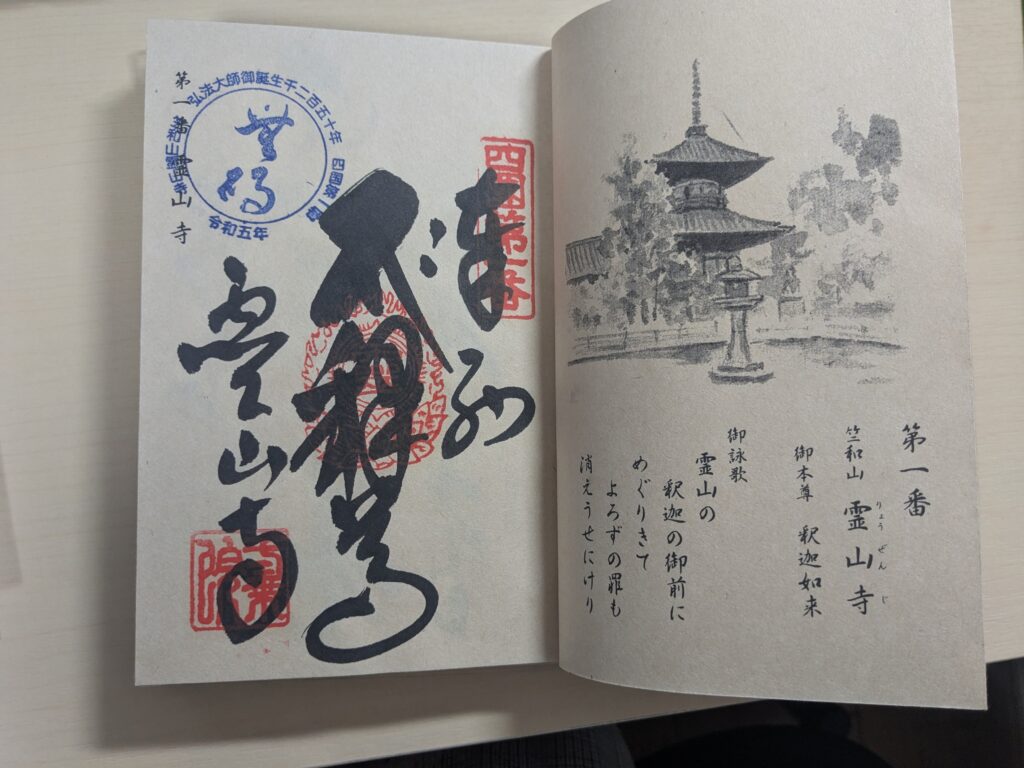 第一番
竺和山 霊山寺
りょうぜんじ
御本尊 釈迦如来
御詠歌
霊山の
釈迦の御前に
めぐりきて
よろずの罪も
消えうせにけり
四国第一番
奉納
霊山寺
弘法大師御誕生千二百五十年 四国第一番
令和五年
竺和山霊山寺
第一番 霊山寺